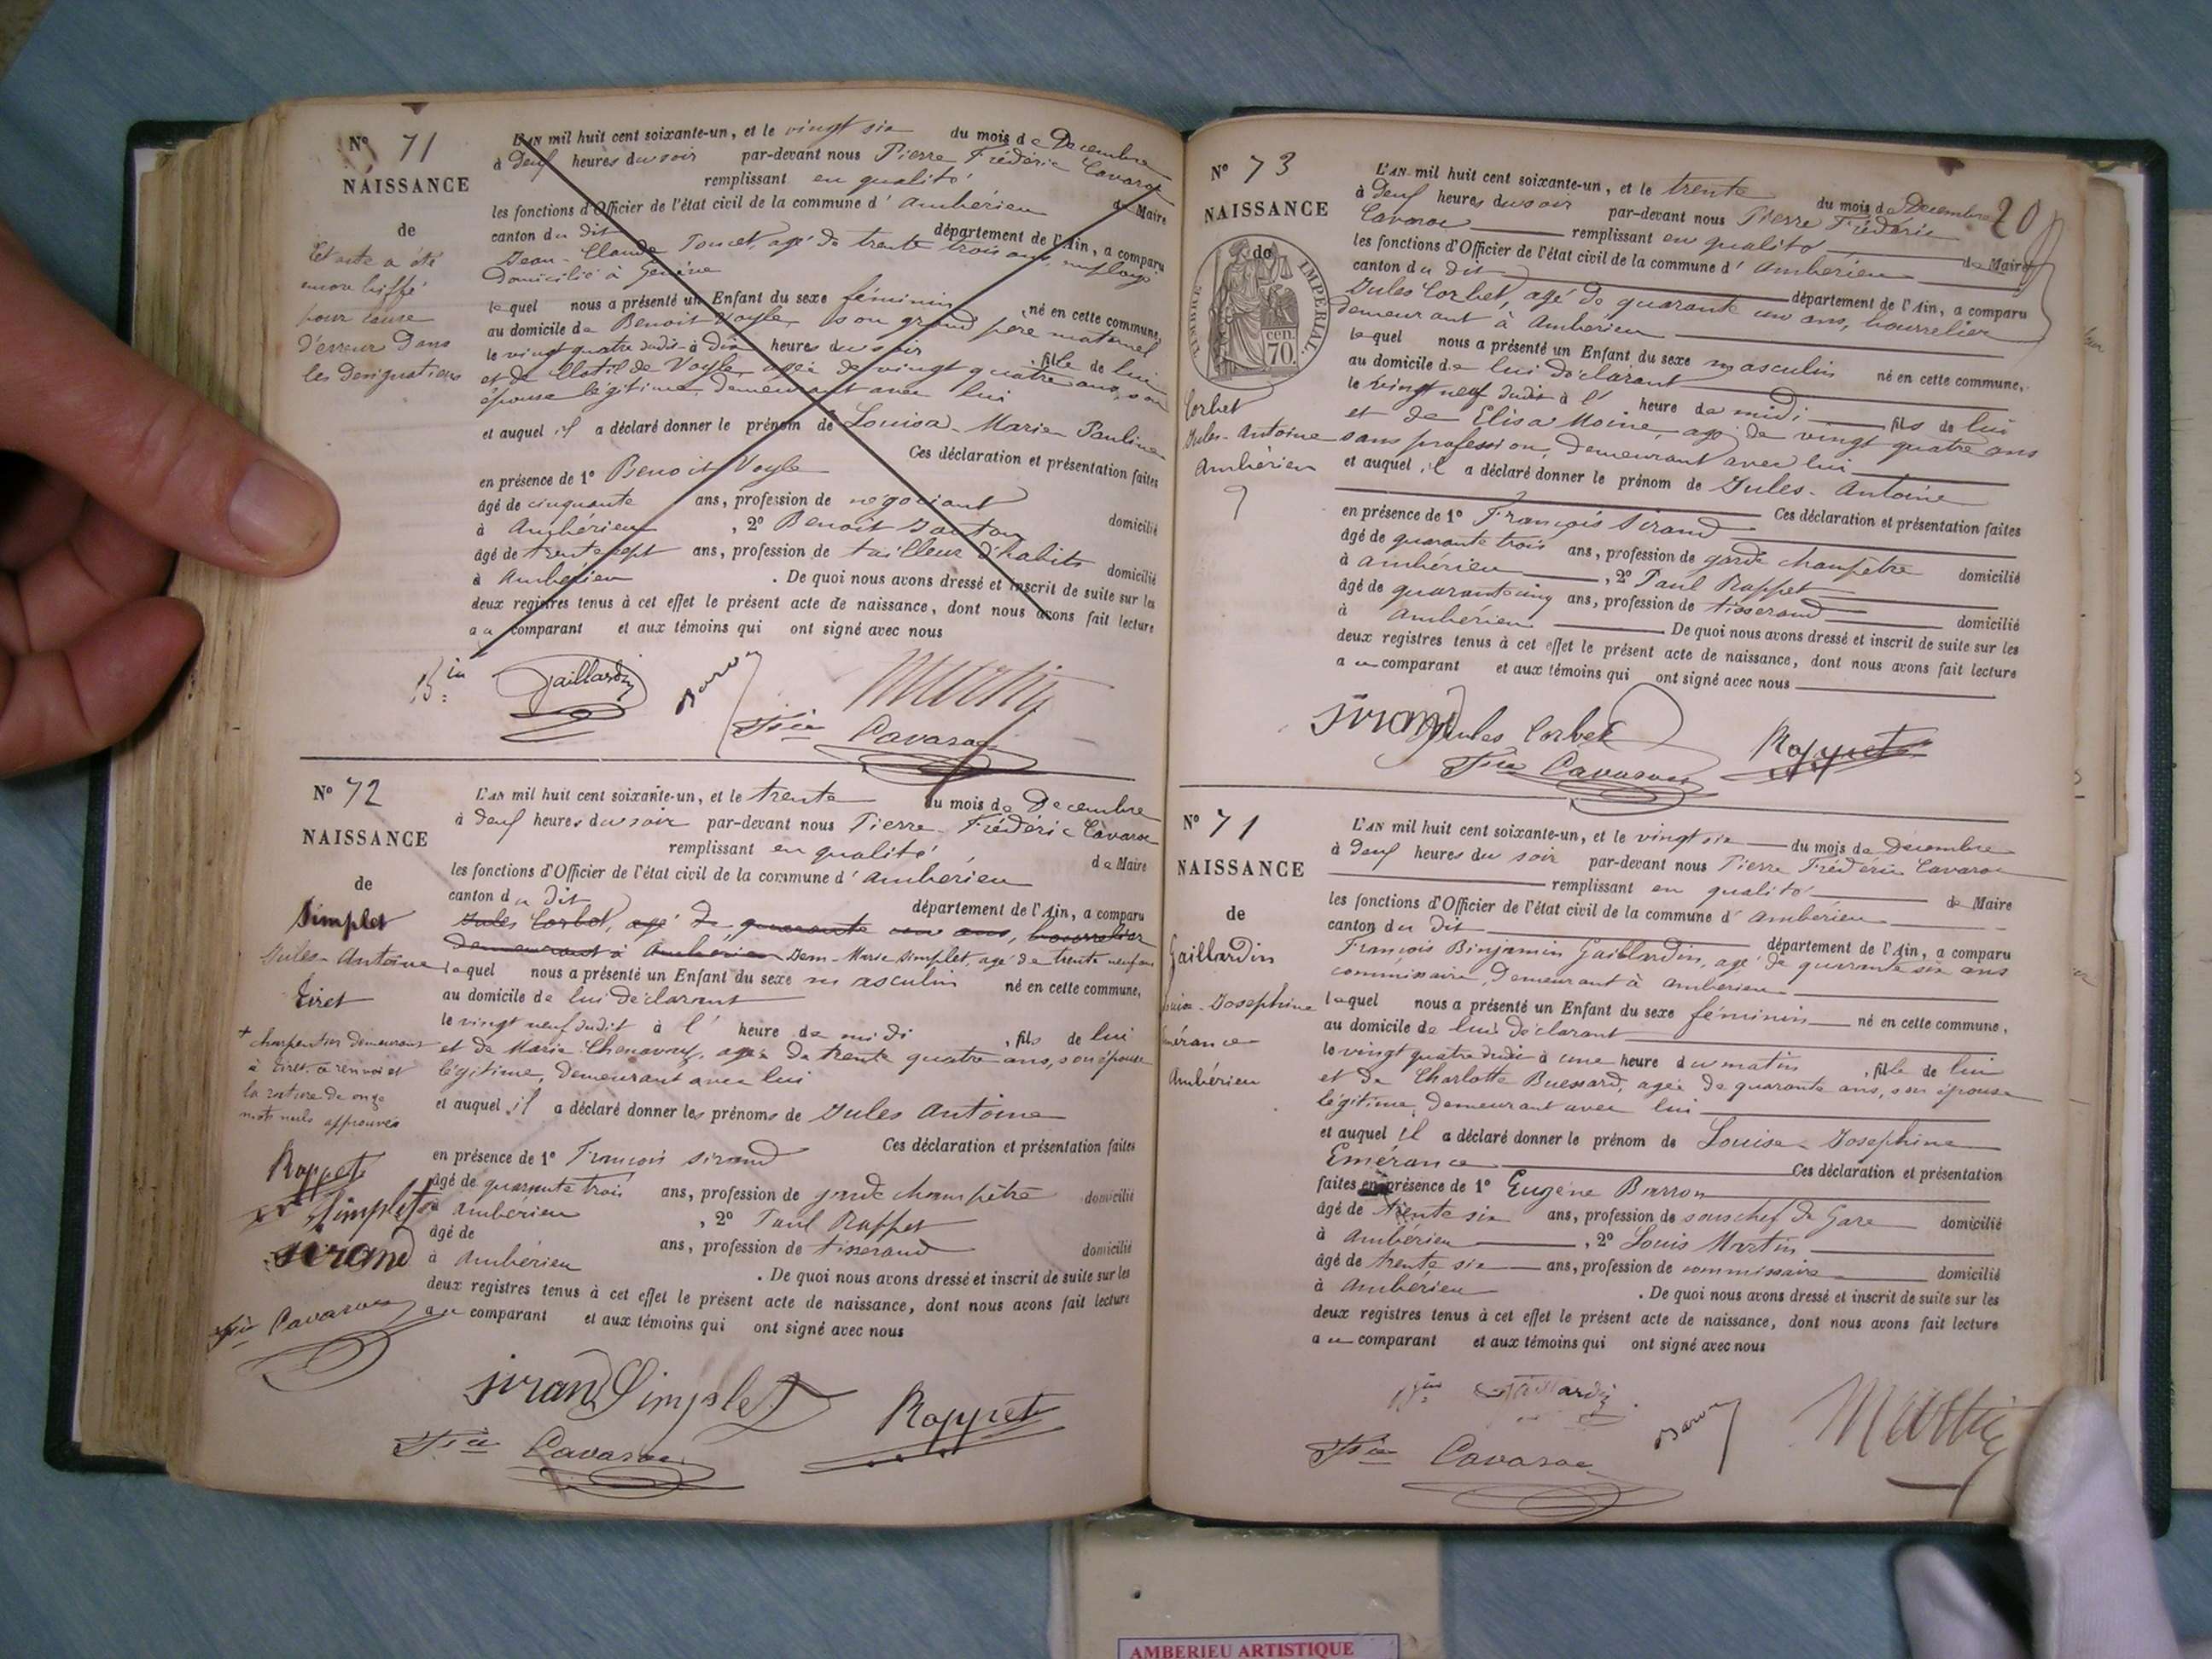 N° 71
NAISSANCE
de
L'AN mil huit cent soixante-un, et le vingt six du mois de Decembre
à Deux heures du soir par-devant nous Pierre Frédéric Cavaroc
remplissant en qualité de Maire
les fonctions d'Officier de l'état civil de la commune d' Ambérieu
canton du dit département de l'Ain, a comparu
Jean-Claude agé de trente trois ans, employé
domicilié à Genève
lequel nous a présenté un Enfant du sexe féminin, né en cette commune,
au domicile de Benoit Vayle son grand père maternel
le vingt quatre dudit à Dix heures du soir, fille de lui
et de Clotilde Vayle, agée de vingt quatre ans, son
épouse légitime, demeurant avec lui
et auquel il a déclaré donner le prénom de Louisa-Marie-Pauline
Ces déclaration et présentation faites
en présence de 1° Benoit Vayle
âgé de cinquante ans, profession de négociant domicilié
à Ambérieu, 2° Benoit
âgé de trente sept ans, profession de tailleur d'habits domicilié
à Ambérieu. De quoi nous avons dressé et inscrit de suite sur les
deux registres tenus à cet effet le présent acte de naissance, dont nous avons fait lecture
au comparant et aux témoins qui ont signé avec nous
Cet acte a été
encore biffé
pour cause
d'erreur dans
les designations
Gaillardin Barron Martin
Cavaroc
N° 72
NAISSANCE
de
Simplet
Jules-Antoine
Tiret
L'AN mil huit cent soixante-un, et le trente du mois de Decembre
à Deux heures du soir par-devant nous Pierre-Frédéric Cavaroc
remplissant en qualité de Maire
les fonctions d'Officier de l'état civil de la commune d' Ambérieu
canton du dit département de l'Ain, a comparu
Jules Corbet, agé de quarante un ans, bourrelier
demeurant à Ambérieu Jean-Marie Simplet, agé de trente neuf ans
lequel nous a présenté un Enfant du sexe masculin né en cette commune,
au domicile de lui déclarant
le vingt neuf dudit à l' heure de midi, fils de lui
et de Marie agée de trente quatre ans, son épouse
légitime, demeurant avec lui
et auquel il a déclaré donner les prénoms de Jules Antoine
Ces déclaration et présentation faites
en présence de 1° François Sirand
âgé de quarante trois ans, profession de garde champêtre domicilié
à Ambérieu, 2° Paul Rappet
âgé de ans, profession de tisserand domicilié
à Ambérieu. De quoi nous avons dressé et inscrit de suite sur les
deux registres tenus à cet effet le présent acte de naissance, dont nous avons fait lecture
au comparant et aux témoins qui ont signé avec nous
+ charpentier demeurant
à Tiret, ce renvoi et
la rature de onze
mots nuls approuvés
Rappet
Simplet
Sirand
Cavaroc
Sirand Simplet Rappet
Cavaroc
N° 73
NAISSANCE
de
TIMBRE IMPÉRIAL
70 cen
Corbet
Jules-Antoine
Ambérieu
20
L'AN mil huit cent soixante-un, et le trente du mois de Decembre
à Deux heures du soir par-devant nous Pierre Frédéric
Cavaroc remplissant en qualité de Maire
les fonctions d'Officier de l'état civil de la commune d' Ambérieu
canton du dit département de l'Ain, a comparu
Jules Corbet, agé de quarante un ans, bourrelier
demeurant à Ambérieu
lequel nous a présenté un Enfant du sexe masculin né en cette commune,
au domicile de lui déclarant
le vingt neuf dudit à l' heure de midi fils de lui
et de Elisa Moine, agé de vingt quatre ans
sans profession, demeurant avec lui
et auquel il a déclaré donner le prénom de Jules-Antoine
Ces déclaration et présentation faites
en présence de 1° François Sirand
âgé de quarante trois ans, profession de garde champêtre domicilié
à Ambérieu, 2° Paul Rappet
âgé de quarante cinq ans, profession de tisserand domicilié
à Ambérieu De quoi nous avons dressé et inscrit de suite sur les
deux registres tenus à cet effet le présent acte de naissance, dont nous avons fait lecture
au comparant et aux témoins qui ont signé avec nous
Sirand Jules Corbet Rappet
Cavaroc
N° 71
NAISSANCE
de
Gaillardin
Louise-Josephine
Emérance
Ambérieu
L'AN mil huit cent soixante-un, et le vingt six du mois de Decembre
à Deux heures du soir par-devant nous Pierre Frédéric Cavaroc
remplissant en qualité de Maire
les fonctions d'Officier de l'état civil de la commune d' Ambérieu
canton du dit département de l'Ain, a comparu
François Binjamin Gaillardin, agé de quarante six ans
commissaire, demeurant à Ambérieu
lequel nous a présenté un Enfant du sexe féminin né en cette commune,
au domicile de lui déclarant
le vingt quatre dudit à une heure du matin, fille de lui
et de Charlotte Buessard, agée de quarante ans, son épouse
légitime, demeurant avec lui
et auquel il a déclaré donner le prénom de Louise-Josephine
Emérance Ces déclaration et présentation
faites en présence de 1° Eugène Barron
âgé de trente six ans, profession de sous chef de Gare domicilié
à Ambérieu, 2° Louis Martin
âgé de trente six ans, profession de commissaire domicilié
à Ambérieu. De quoi nous avons dressé et inscrit de suite sur les
deux registres tenus à cet effet le présent acte de naissance, dont nous avons fait lecture
au comparant et aux témoins qui ont signé avec nous
Gaillardin Barron Martin
Cavaroc
AMBERIEU ARTISTIQUE